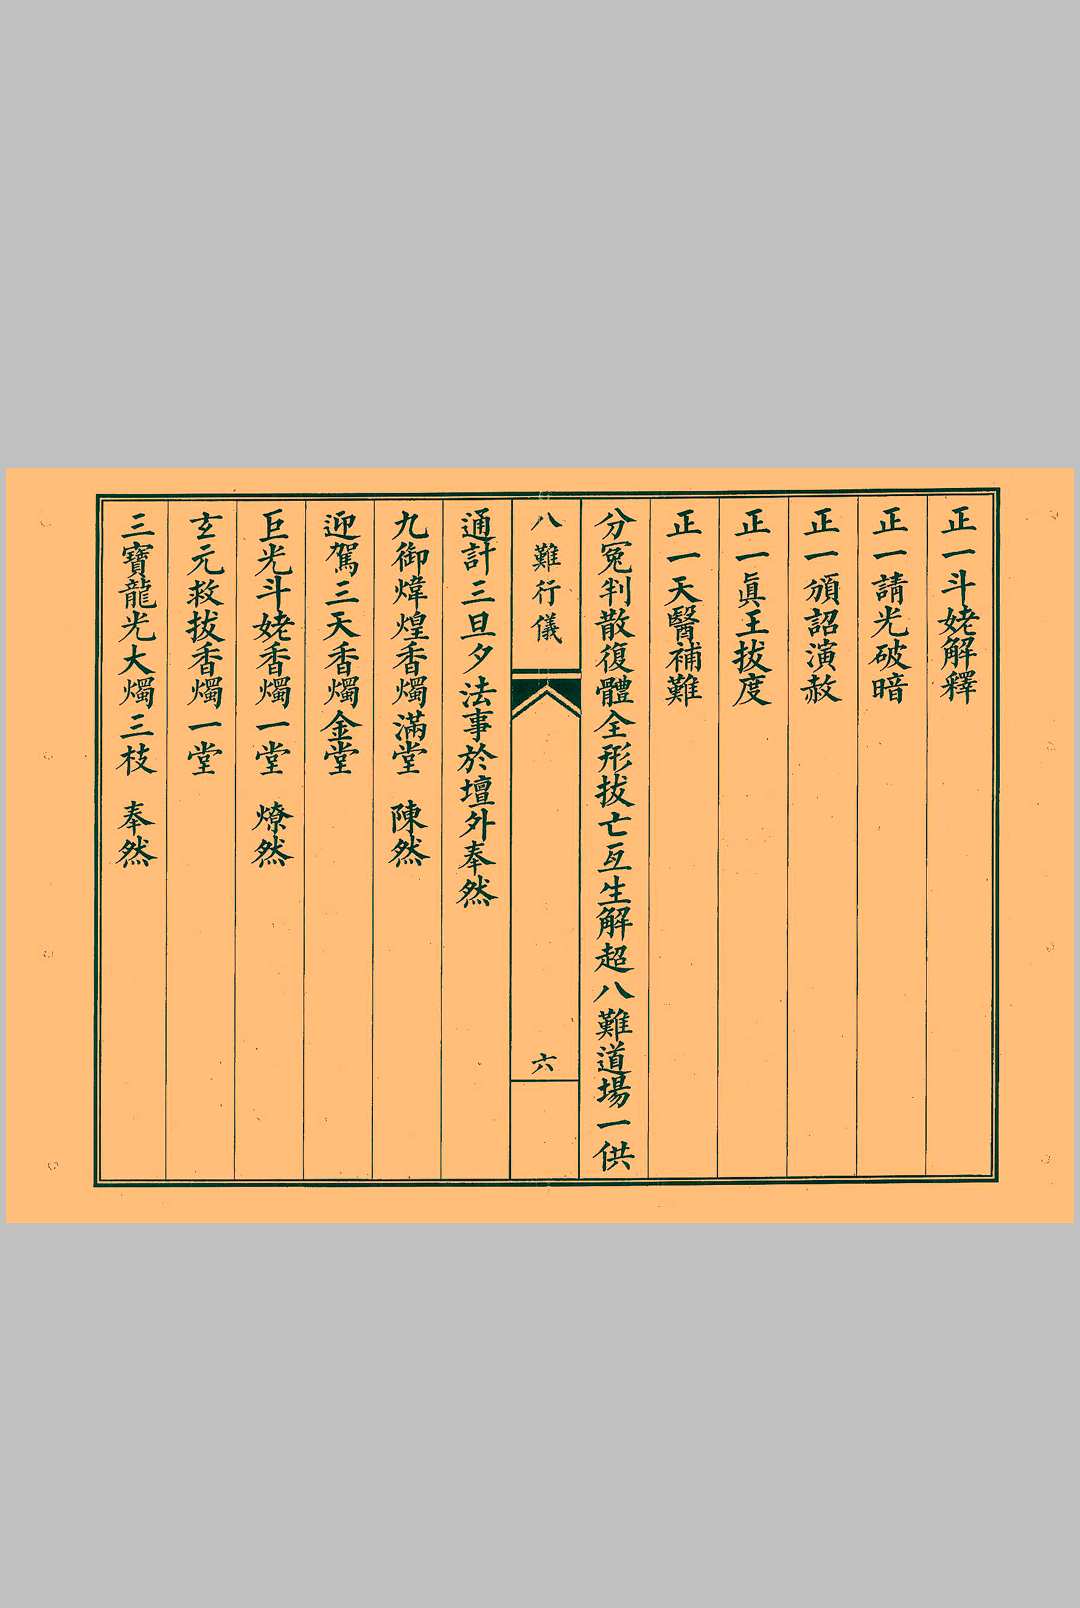 正一斗姥解釋
正一請光破暗
正一頒詔演赦
正一眞王拔度
正一天醫補難
分冤判散復體全形拔亡亙生解超八難道場一供
八難行儀
六
通計三旦夕法事於壇外奉然
九御煒煌香燭滿堂 陳然
迎駕三天香燭金堂
巨光斗姥香燭一堂 燎然
玄元救拔香燭一堂
三寶龍光大燭三枝 奉然